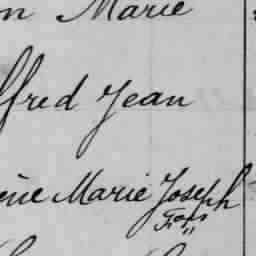 n Marie
lfred Jean
ène Marie Joseph